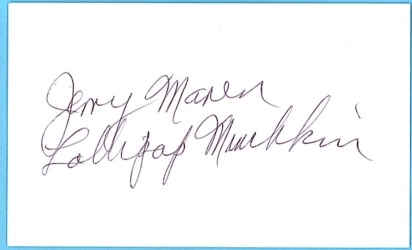 Jerry Maren
Lollipop Munchkin